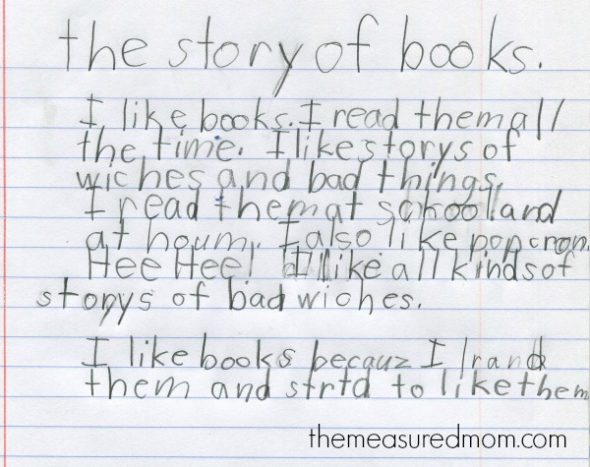 the story of books.
I like books. I read them all
the time. I like storys of
wiches and bad things.
I read them at school and
at houm. I also like popcron.
Hee Hee! I like all kinds of
storys of bad wiches.
I like books becauz I
them and strtd to like them
themeasuredmom.com